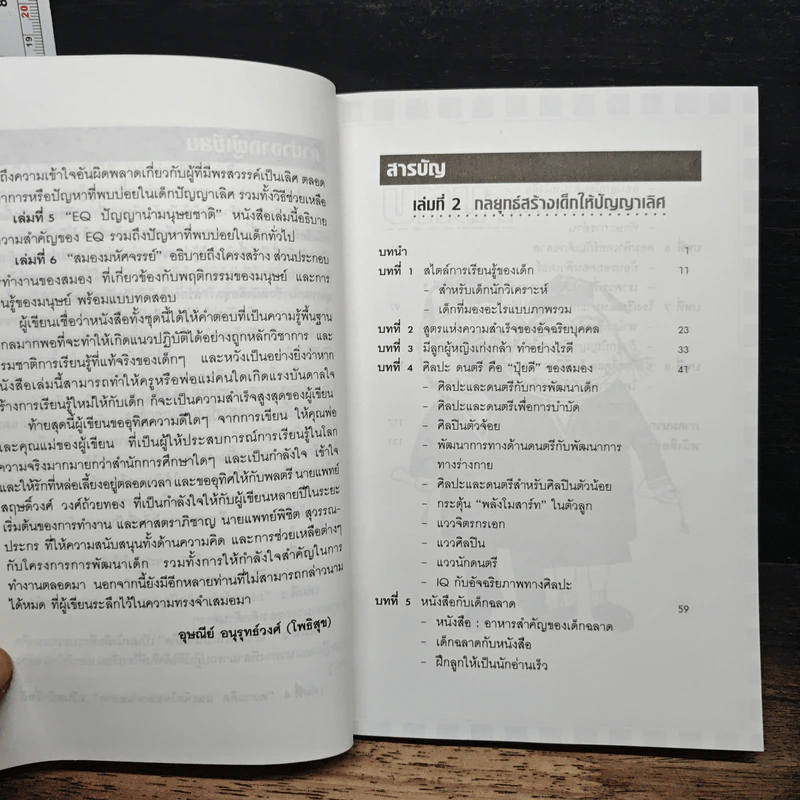 20
19
ถึงความเข้าใจอันผิดพลาดเกี่ยวกับผู้ที่มีพรสวรรค์เป็นเลิศ ตลอด
าการหรือปัญหาที่พบบ่อยในเด็กปัญญาเลิศ รวมทั้งวิธีช่วยเหลือ
เล่มที่ 5 “EQ ปัญญานำมนุษยชาติ” หนังสือเล่มนี้อธิบาย
ความสำคัญของ EQ รวมถึงปัญหาที่พบบ่อยในเด็กทั่วไป
เล่มที่ 6 “สมองมหัศจรรย์” อธิบายถึงโครงสร้าง ส่วนประกอบ
รทำงานของสมอง ที่เกี่ยวข้องกับพฤติกรรมของมนุษย์ และการ
นรู้ของมนุษย์ พร้อมแบบทดสอบ
ผู้เขียนเชื่อว่าหนังสือทั้งชุดนี้ได้ให้คำตอบที่เป็นความรู้พื้นฐาน
กลมากพอที่จะทำให้เกิดแนวปฏิบัติได้อย่างถูกหลักวิชาการ และ
รมชาติการเรียนรู้ที่แท้จริงของเด็กๆ และหวังเป็นอย่างยิ่งว่าหาก
นังสือเล่มนี้สามารถทำให้ครูหรือพ่อแม่คนใดเกิดแรงบันดาลใจ
ร้างการเรียนรู้ใหม่ให้กับเด็ก ก็จะเป็นความสำเร็จสูงสุดของผู้เขียน
ท้ายสุดนี้ผู้เขียนขออุทิศความดีใดๆ จากการเขียน ให้คุณพ่อ
และคุณแม่ของผู้เขียน ที่เป็นผู้ให้ประสบการณ์การเรียนรู้ในโลก
ความจริงมากมายกว่าสำนักการศึกษาใดๆ และเป็นกำลังใจ เข้าใจ
และให้รักที่หล่อเลี้ยงอยู่ตลอดเวลา และขออุทิศให้กับพลตรี นายแพทย์
สฤษดิ์วงศ์ วงศ์ถ้วยทอง ที่เป็นกำลังใจให้กับผู้เขียนหลายปีในระยะ
เริ่มต้นของการทำงาน และศาสตราภิชาญ นายแพทย์พิชิต สุวรรณ-
ประกร ที่ให้ความสนับสนุนทั้งด้านความคิด และการช่วยเหลือต่างๆ
กับโครงการการพัฒนาเด็ก รวมทั้งการให้กำลังใจสำคัญในการ
ทำงานตลอดมา นอกจากนี้ยังมีอีกหลายท่านที่ไม่สามารถกล่าวนาม
ได้หมด ที่ผู้เขียนระลึกไว้ในความทรงจำเสมอมา
อุษณีย์ อนุรุทธ์วงศ์ (โพธิสุข)
สารบัญ
เล่มที่ 2 กลยุทธ์สร้างเด็กให้ปัญญาเลิศ
บทนำ 1
บทที่ 1 สไตล์การเรียนรู้ของเด็ก 11
– สำหรับเด็กนักวิเคราะห์
– เด็กที่มองอะไรแบบภาพรวม
บทที่ 2 สูตรแห่งความสำเร็จของอัจฉริยบุคคล 23
บทที่ 3 มีลูกผู้หญิงเก่งกล้า ทำอย่างไรดี 33
บทที่ 4 ศิลปะ ดนตรี คือ “ปุ๋ยดี” ของสมอง 41
– ศิลปะและดนตรีกับการพัฒนาเด็ก
– ศิลปะและดนตรีเพื่อการบำบัด
– ศิลปินตัวจ้อย
– พัฒนาการทางด้านดนตรีกับพัฒนาการ
ทางร่างกาย
– ศิลปะและดนตรีสำหรับศิลปินตัวน้อย
– กระตุ้น “พลังโมสาร์ท” ในตัวลูก
– แววจิตรกรเอก
– แววศิลปิน
– แววนักดนตรี
– IQ กับอัจฉริยภาพทางศิลปะ
บทที่ 5 หนังสือกับเด็กฉลาด 59
– หนังสือ : อาหารสำคัญของเด็กฉลาด
– เด็กฉลาดกับหนังสือ
– ฝึกลูกให้เป็นนักอ่านเร็ว